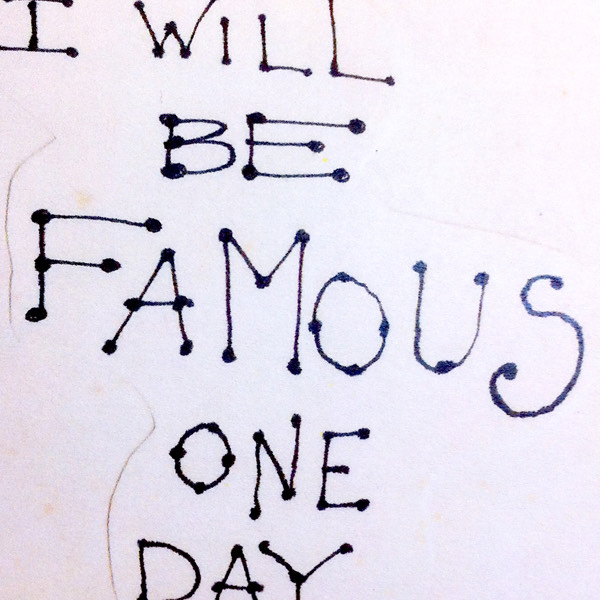 I WILL
BE
FAMOUS
ONE
DAY